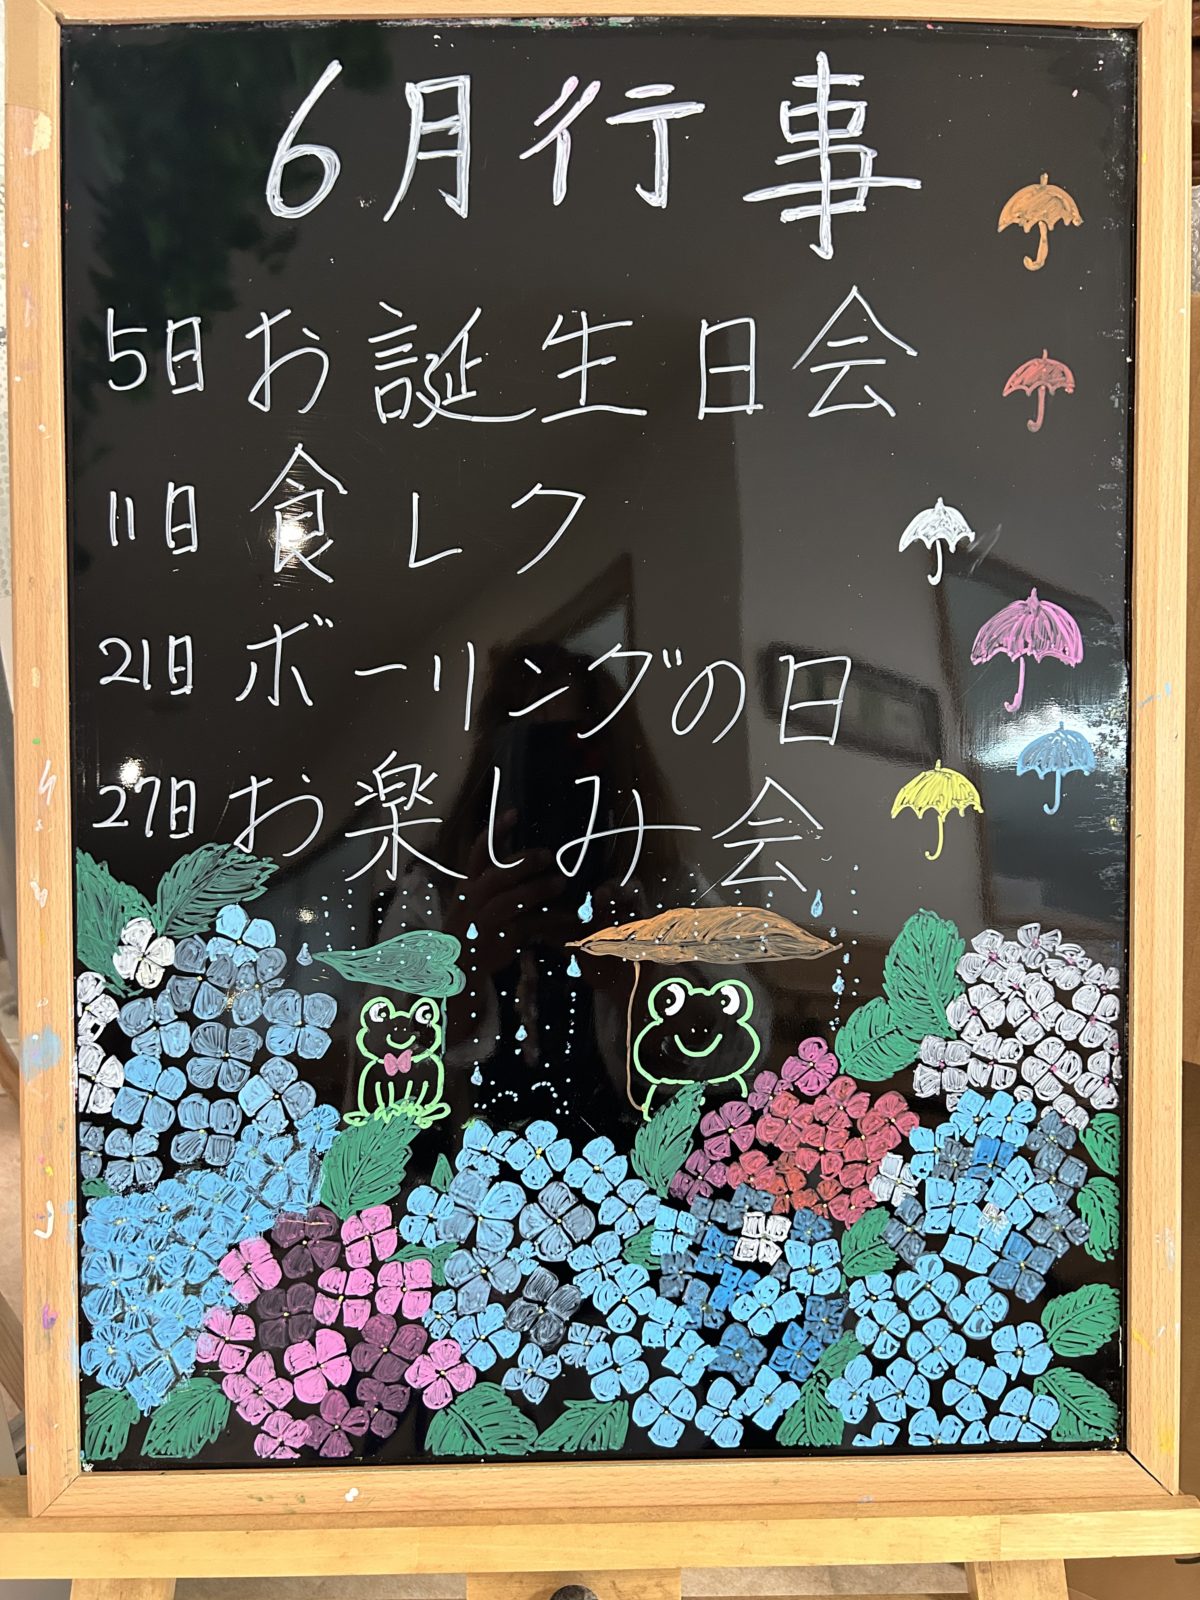 6月行事
5日お誕生日会
11日食レク
21日ボーリングの日
27日お楽しみ会